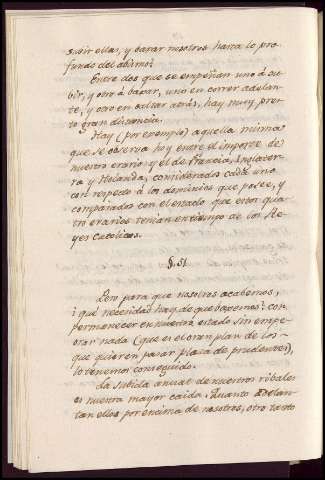 subir ellas, y baxar nosotros hasta lo pro-
fundo del abismo?
Entre dos que se empeñan uno á su-
bir, y otro á baxar, uno en correr adelan-
te, y otro en saltar atrás, hay muy pres-
to gran distancia.
Hay (por exemplo) aquella misma
que se observa hoy entre el importe de
nuestro erario y el de Francia, Inglater-
ra y Holanda, considerados cada uno
con respecto á los dominios que posee, y
comparados con el estado que estos qua-
tro erarios tenian en tiempo de los Re-
yes Catolicos.
§. 51.
Pero para que nosotros acabemos,
¿qué necesidad hay de que baxemos? con
permanecer en nuestro estado sin empe-
orar nada (que es el gran plan de los
que quieren pasar plaza de prudentes),
lo tenemos conseguido.
La subida anual de nuestros ribales
es nuestra mayor caida. Quanto adelan-
tan ellos por encima de nosotros, otro tanto